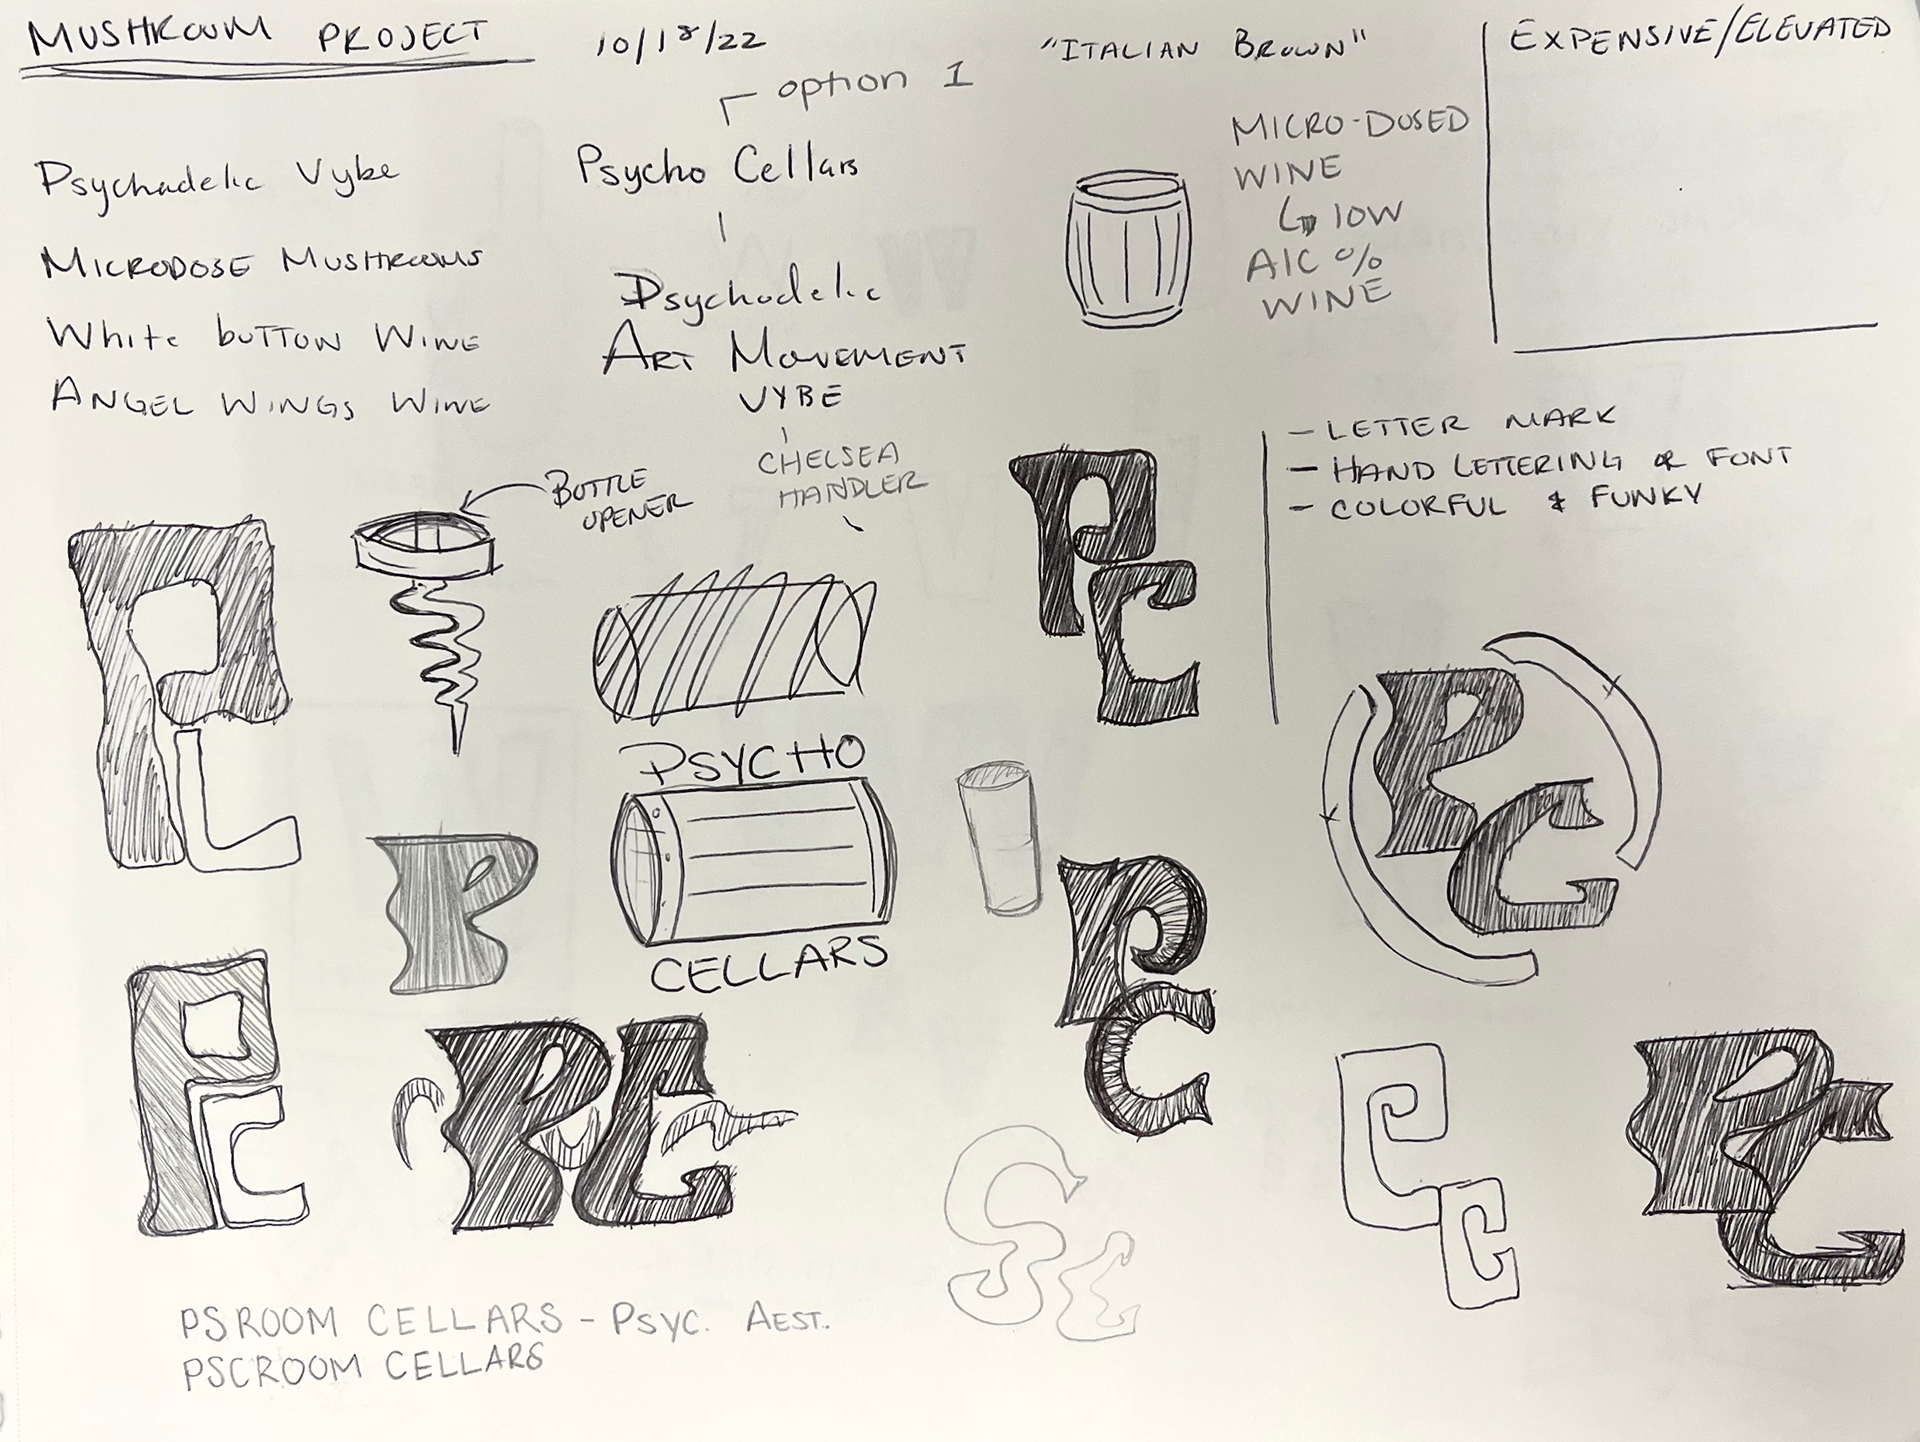 MUSHROOM PROJECT
10/18/22
"ITALIAN BROWN"
EXPENSIVE/ELEVATED
option 1
Psychadelic Vybe
MICRODOSE MUSHROOMS
White button WINE
ANGEL WINGS WINE
Psycho Cellars
Psychodelic
ART MOVEMENT
VYBE
CHELSEA
HANDLER
MICRO-DOSED
WINE
LOW
AlC %
WINE
- LETTER MARK
- HAND LETTERING or FONT
- COLORFUL & FUNKY
BOTTLE
OPENER
PC
PSYCHO
CELLARS
PC
PC
P
PC
PC
PC
PC
PC
SC
PSROOM CELLARS - PSYC. AEST.
PSCROOM CELLARS